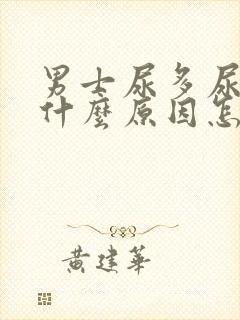 男士尿多尿
什麼原因怎
黃建華